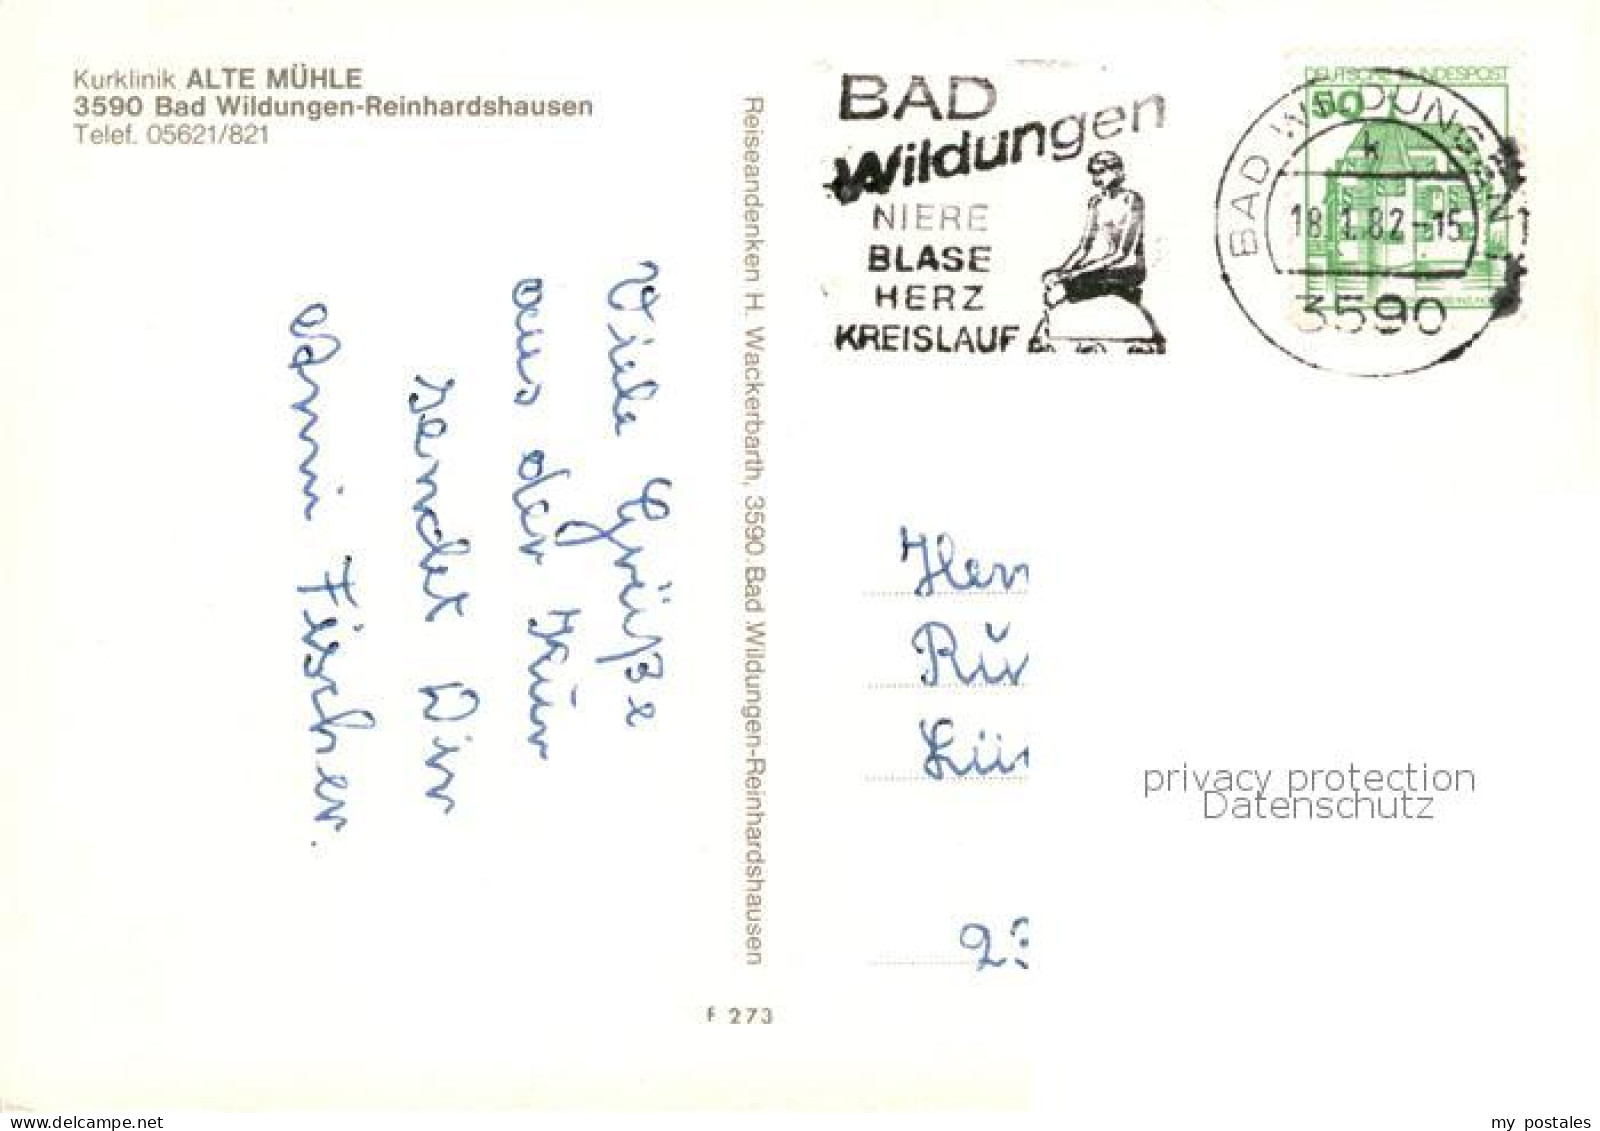 Kurklinik ALTE MÜHLE
3590 Bad Wildungen-Reinhardshausen
Telef. 05621/821
Viele Grüße
aus der Kur
sendet Dir
Anni Fischer.
Reiseandenken H. Wackerbarth, 3590 Bad Wildungen-Reinhardshausen
F 273
BAD
Wildungen
NIERE
BLASE
HERZ
KREISLAUF
DEUTSCHE BUNDESPOST
50
BAD WILDUNGEN 1
k
18.1.82-15
3590
Herr
privacy protection
Datenschutz
my postales